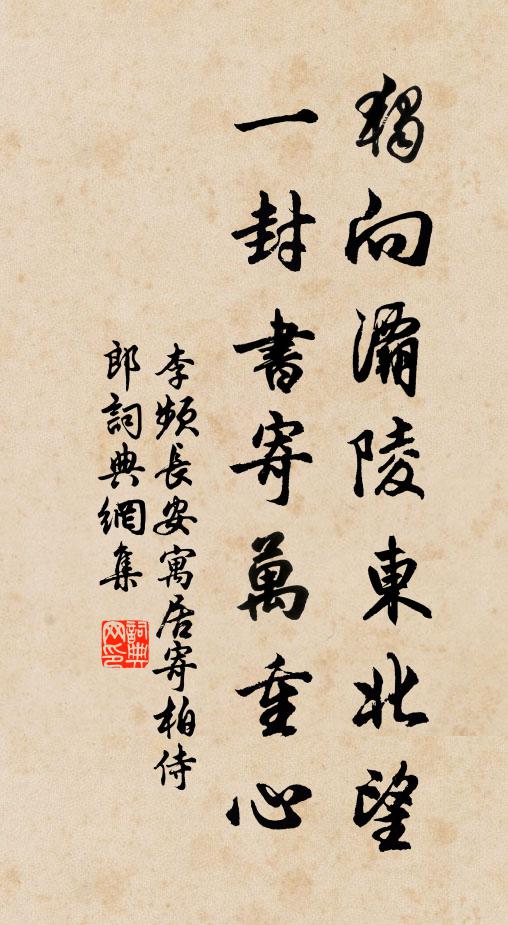 獨向灞陵東北望
一封書寄萬重心
李頻長安寓居寄柏侍
郎詞典網集
詞典
网印